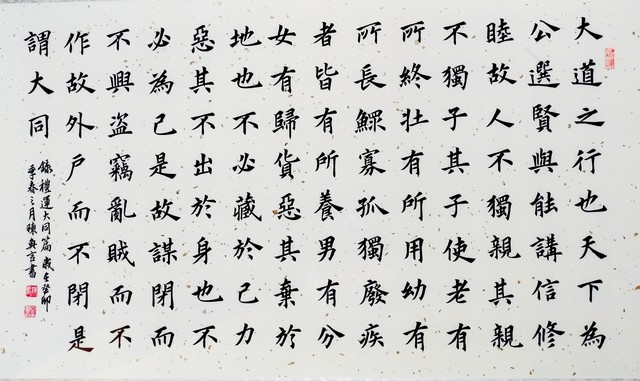 大道之行也天下為
公選賢與能講信修
睦故人不獨親其親
不獨子其子使老有
所終壯有所用幼有
所長鰥寡孤獨廢疾
者皆有所養男有分
女有歸貨惡其棄於
地也不必藏於己力
惡其不出於身也不
必為己是故謀閉而
不興盜竊亂賊而不
作故外戶而不閉是
謂大同
錄禮運大同篇歲在癸卯
季春之月陳言書